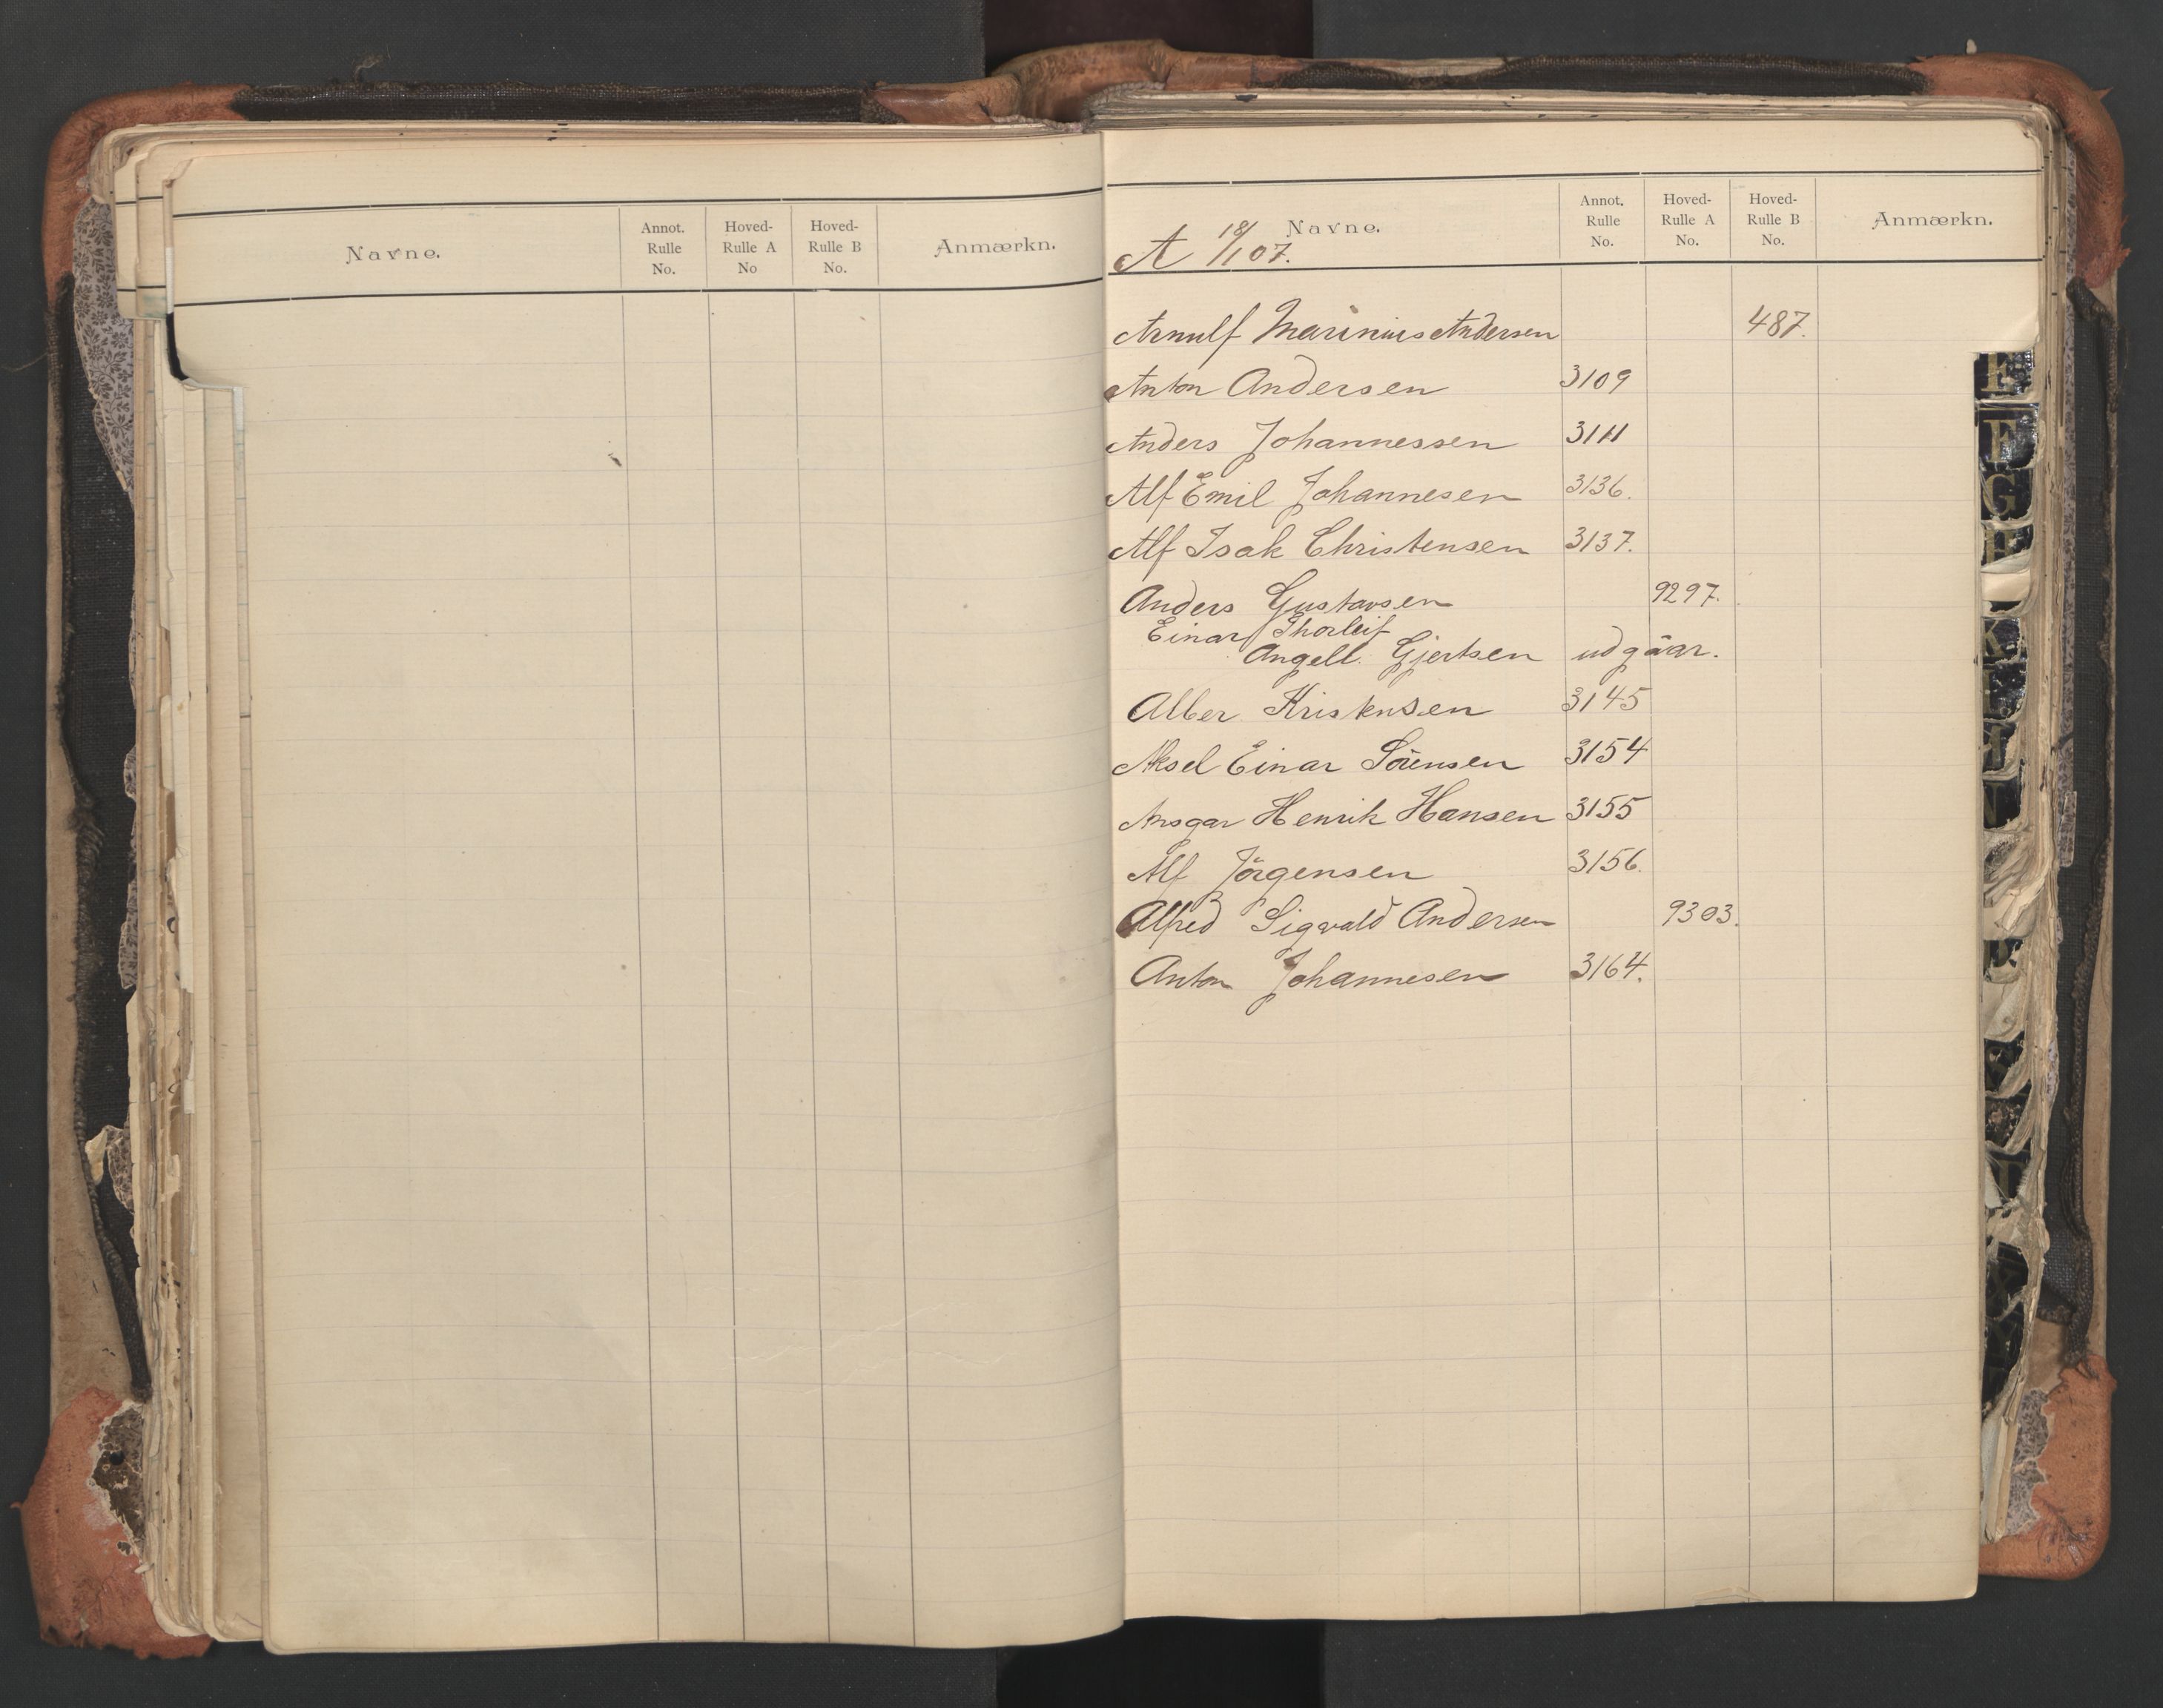 Navne.
Annot. Rulle No.
Hoved-Rulle A No
Hoved-Rulle B No.
Anmærkn.
Navne.
Annot. Rulle No.
Hoved-Rulle A No.
Hoved-Rulle B No.
Anmærkn.
A 18/1 07.
Arnulf Marinius Andersen 487.
Anton Andersen 3109
Anders Johannessen 3111
Alf Emil Johannesen 3136.
Alf Isak Christensen 3137.
Anders Gustavsen 9297.
Einar Thorleif
Angell. Gjertsen udgåar.
Alber Kristensen 3145
Aksel Einar Sörensen 3154
Ansgar Henrik Hansen 3155
Alf Jörgensen 3156.
Alfred Sigvald Andersen 9303.
Anton Johannesen 3164.
E
F
G
H
K
N
T